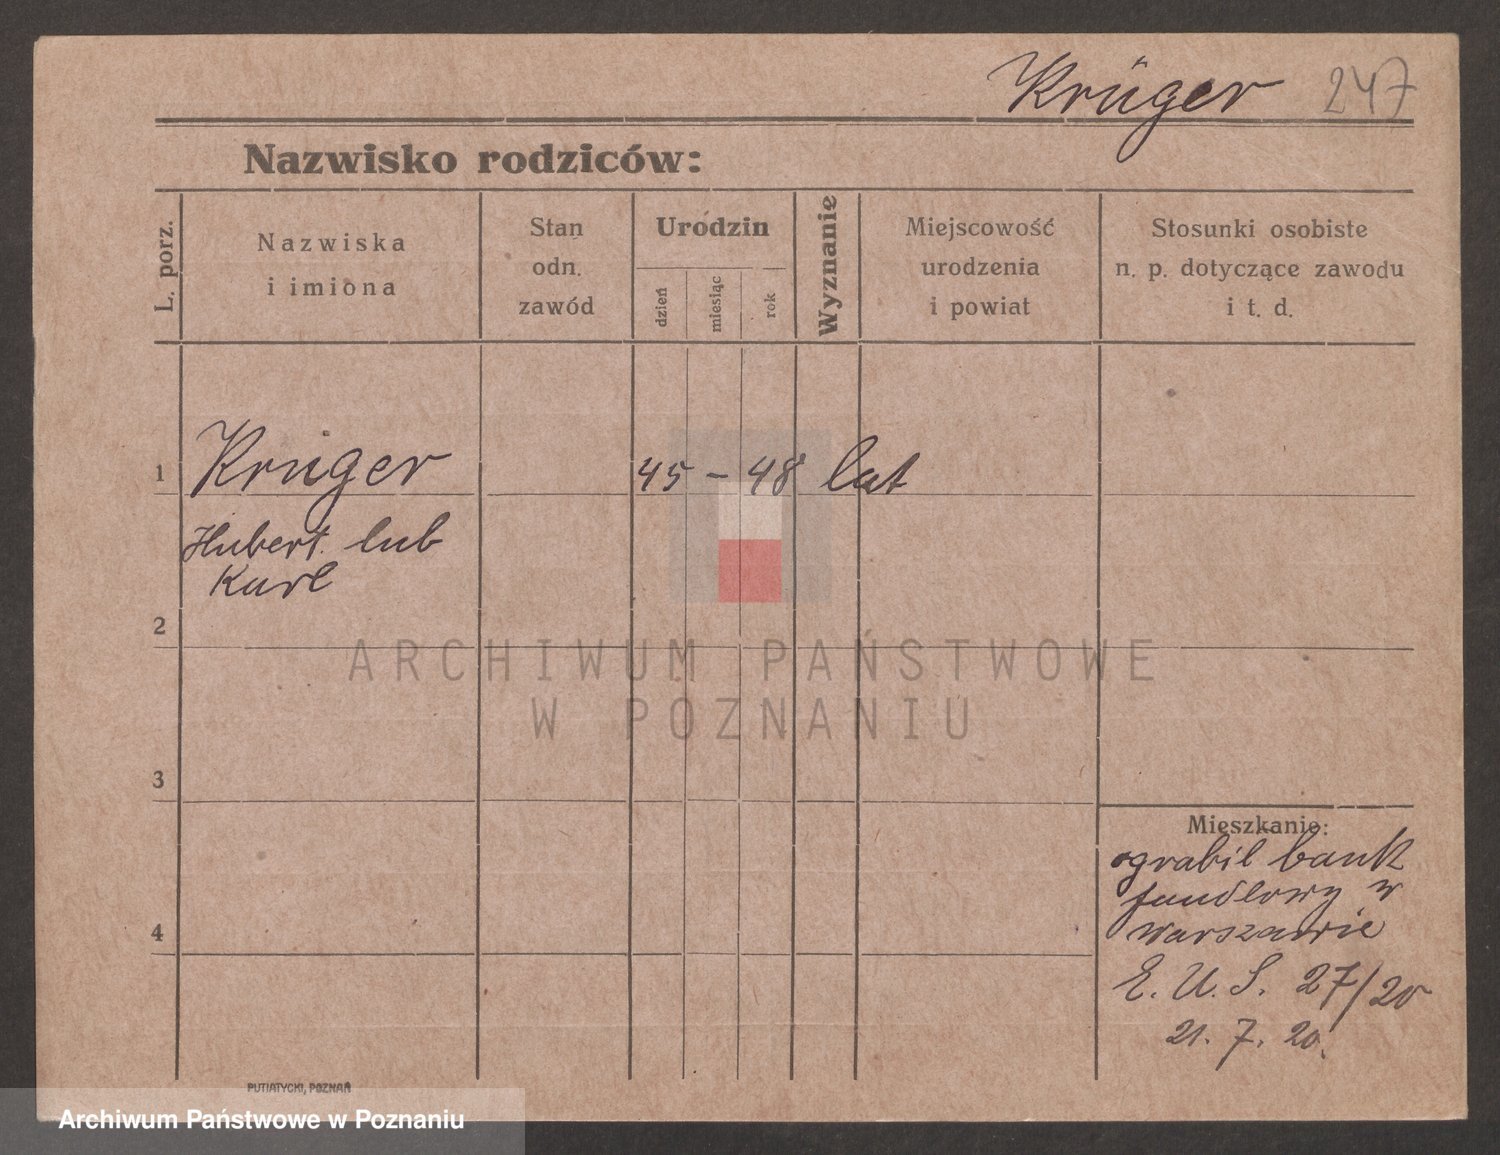 Krüger 247
Nazwisko rodziców:
L. porz.
Nazwiska
i imiona
Stan
odn.
zawód
Urodzin
dzień
miesiąc
rok
Wyznanie
Miejscowość
urodzenia
i powiat
Stosunki osobiste
n. p. dotyczące zawodu
i t. d.
1 Krüger 45 – 48 lat
Hubert lub
Karl
2
ARCHIWUM PAŃSTWOWE
W POZNANIU
3
Mieszkanie:
ograbił bank
handlowy w
Warszawie
4
E. U. S. 27/20
21. 7. 20.
PUTIATYCKI, POZNAŃ
Archiwum Państwowe w Poznaniu